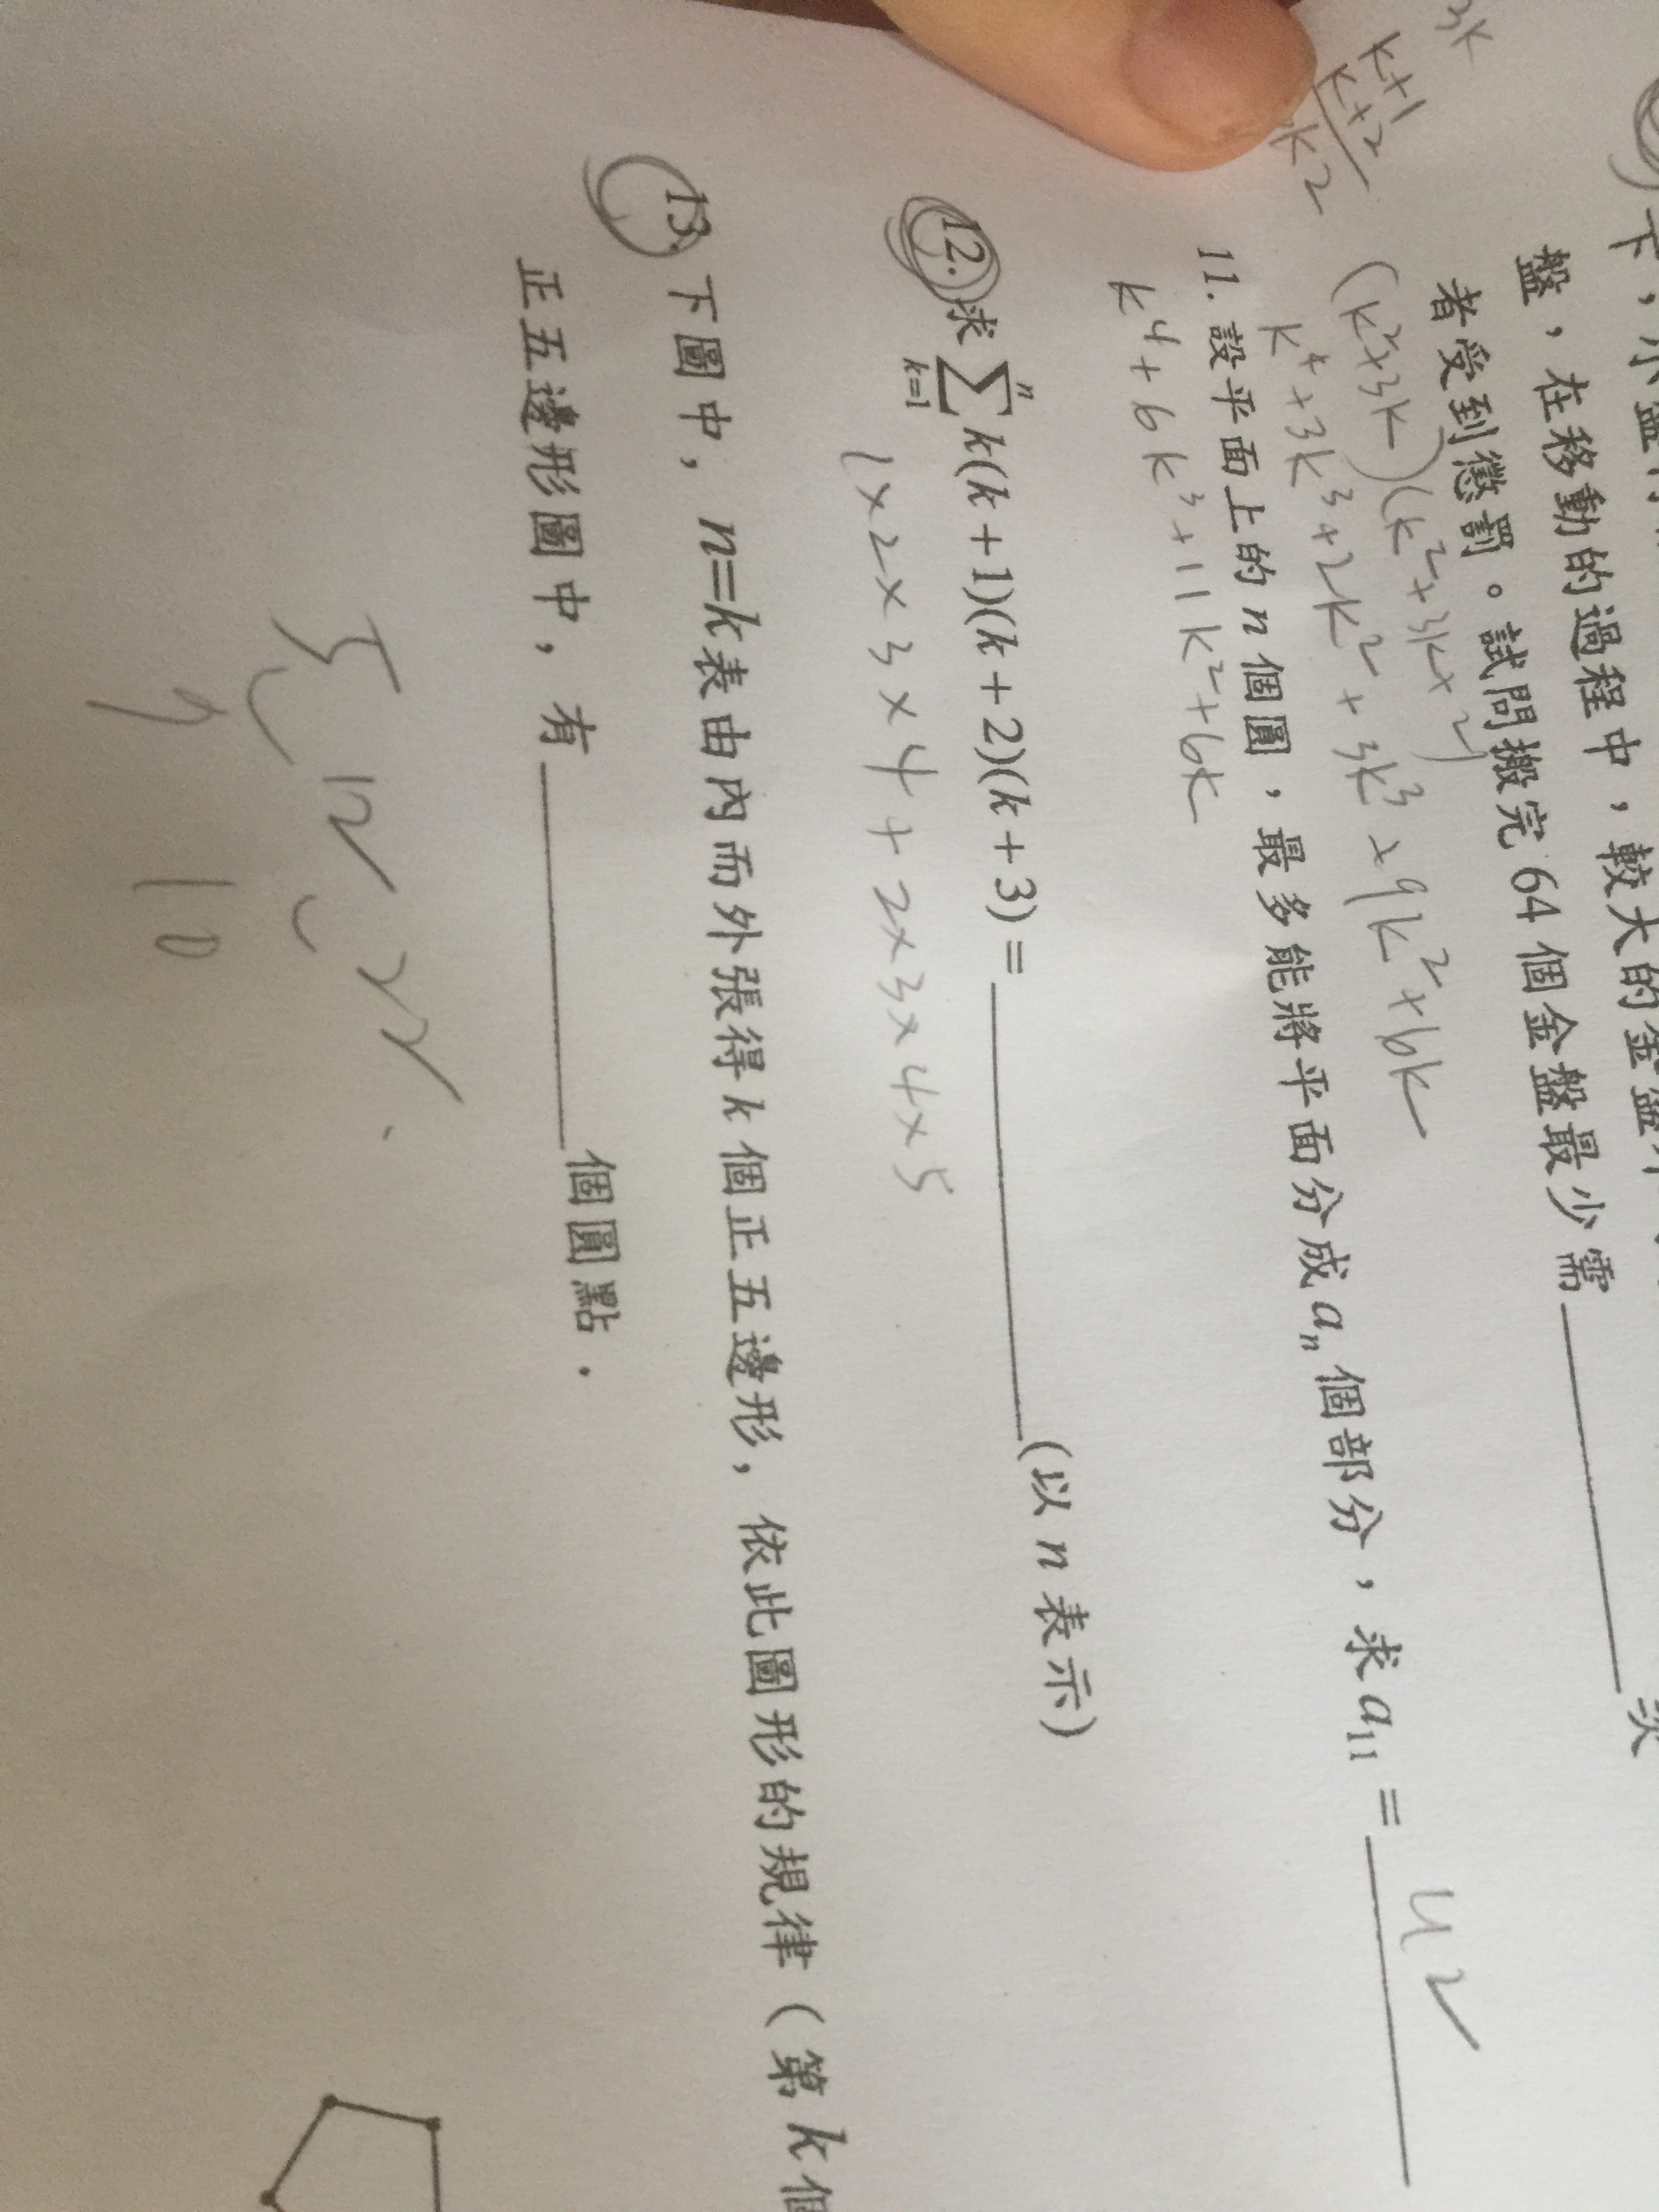 3k
k+1
k+2
k2
下，小盤
盤，在移動的過程中，較大的金盤不
者受到懲罰。試問搬完 64 個金盤最少需______次
(k²+3k)(k²+3k+2)
k⁴+3k³+2k²+3k³+9k²+6k
11. 設平面上的 n 個圓，最多能將平面分成 aₙ 個部分，求 a₁₁ = 
k⁴+6k³+11k²+6k
12. 求 ∑ₖ₌₁ⁿ k(k+1)(k+2)(k+3) = ______(以 n 表示)
1×2×3×4+2×3×4×5
13. 下圖中，n=k 表由內而外張得 k 個正五邊形，依此圖形的規律（第 k 個
正五邊形圖中，有______個圓點．
5 12 22
7 10